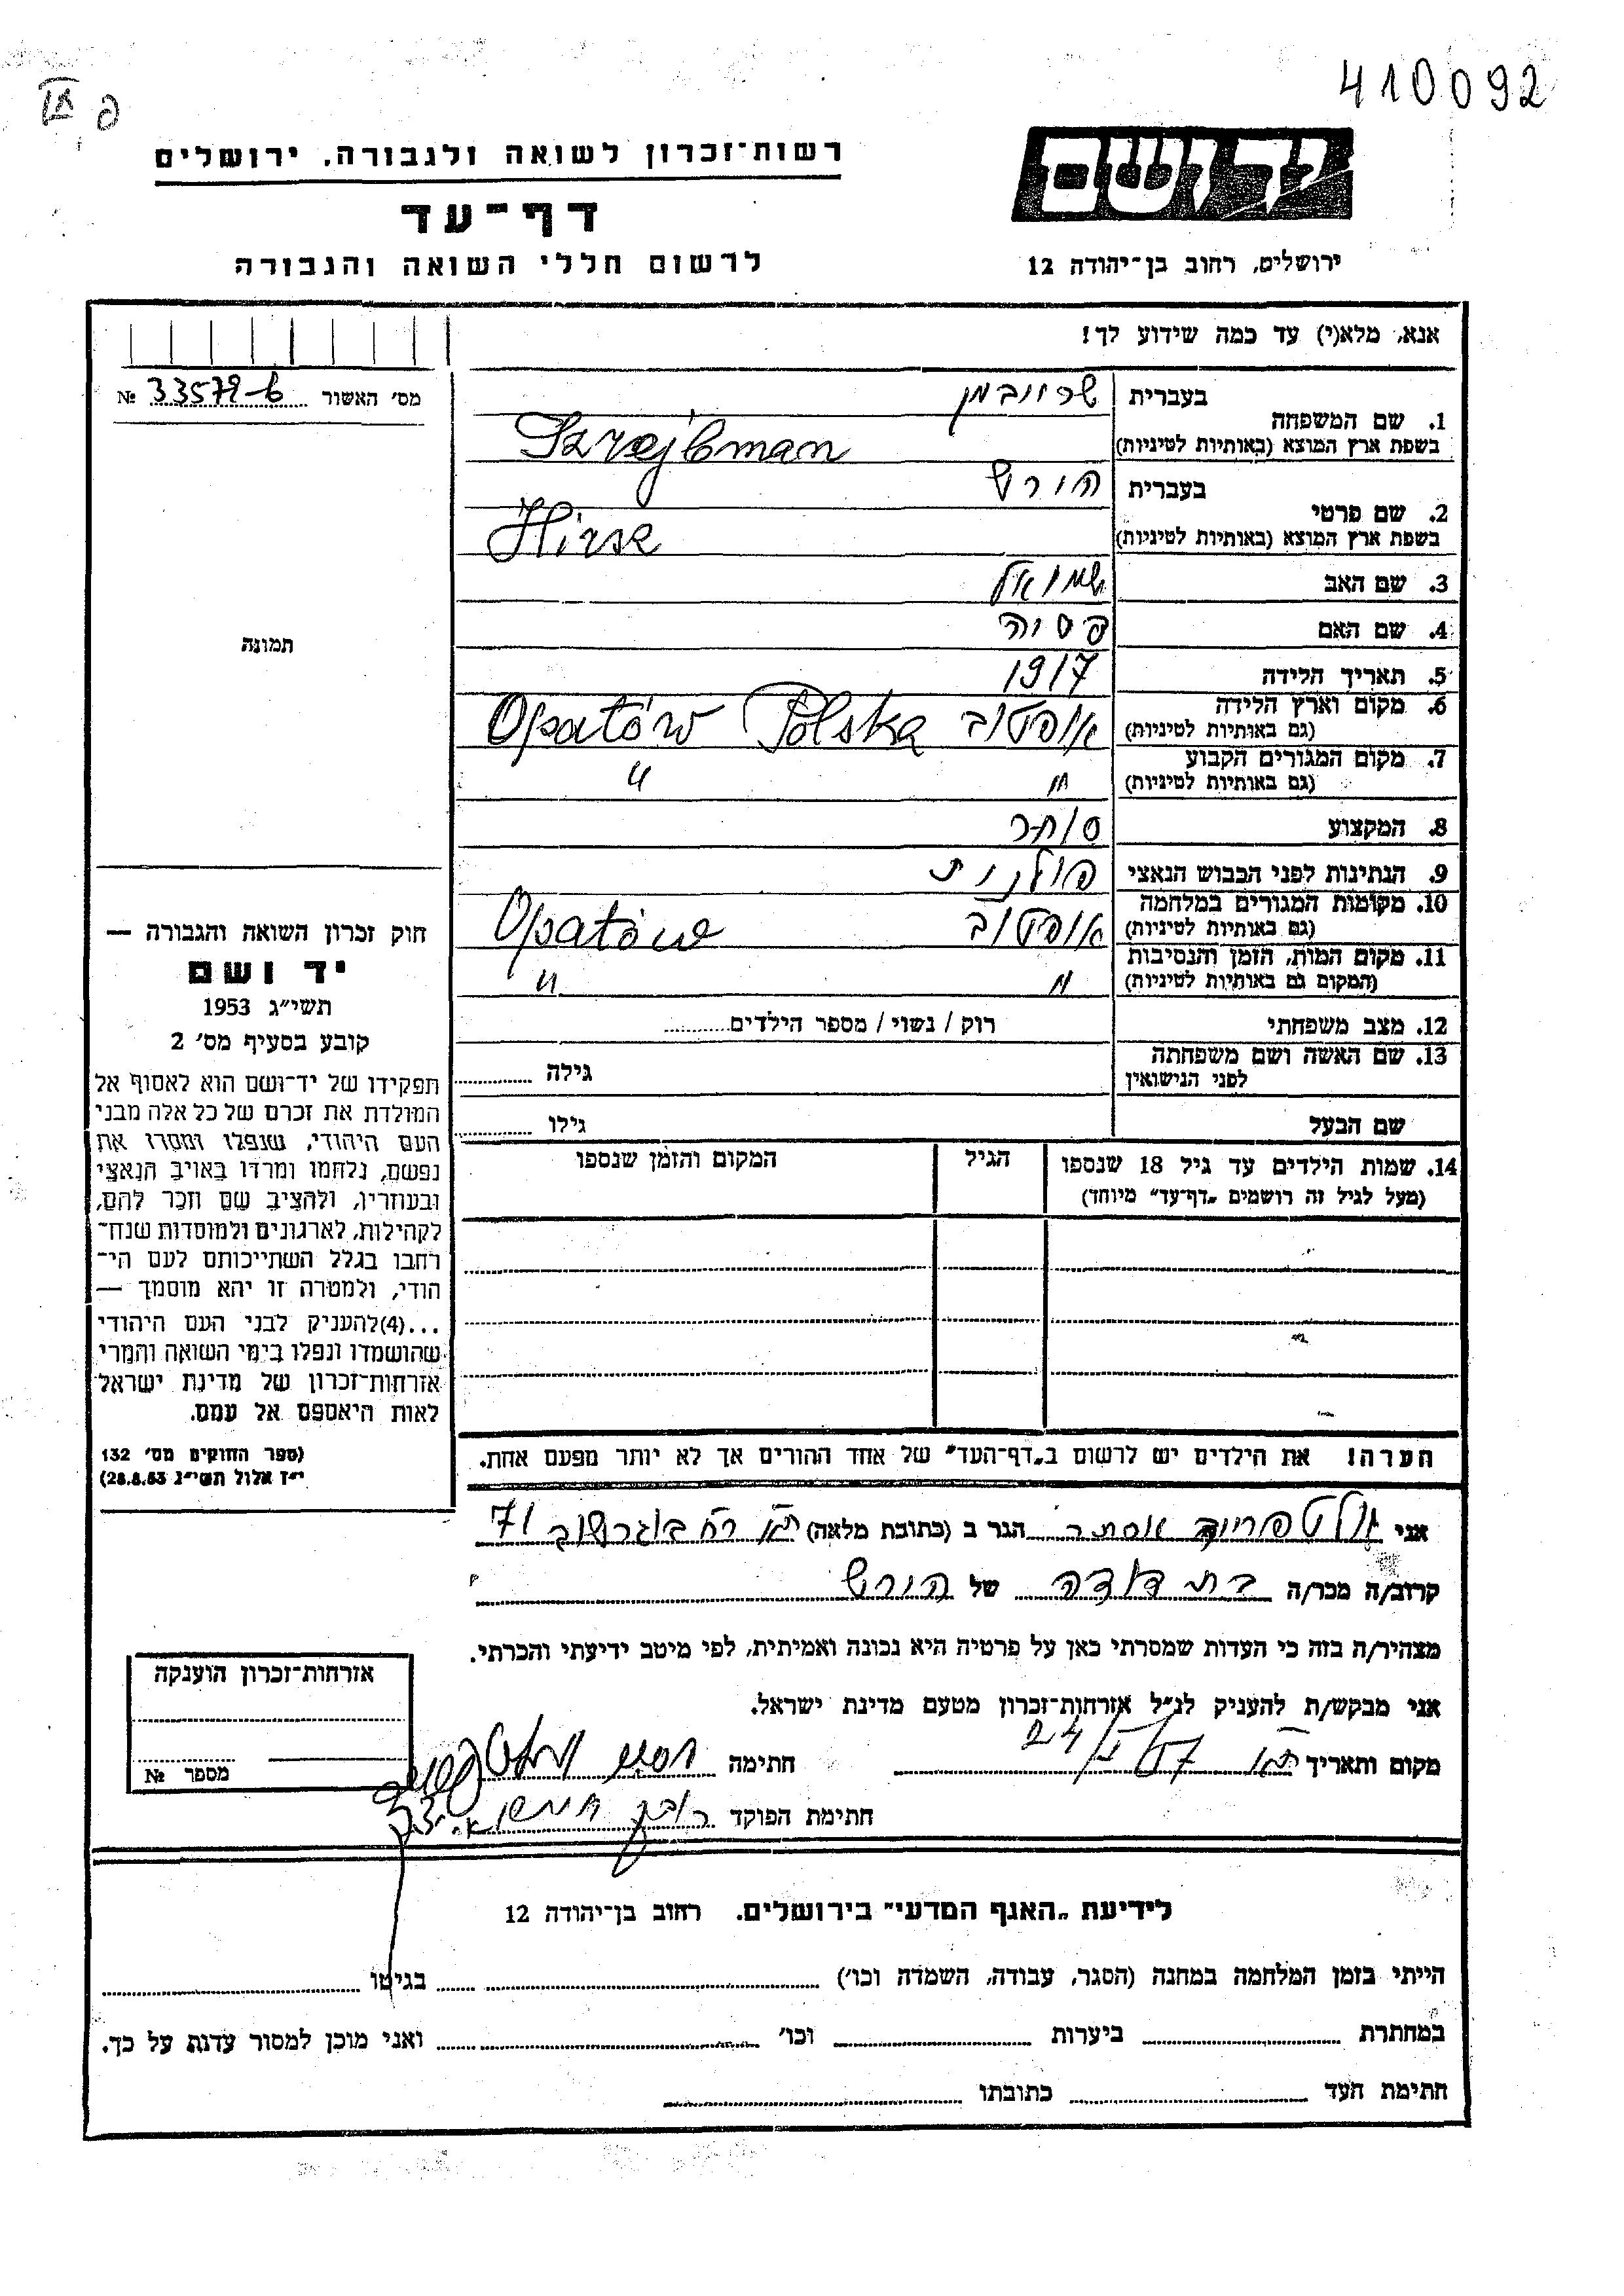 410092
יד ושם
רשות־זכרון לשואה ולגבורה, ירושלים
דף־עד
לרשום חללי השואה והגבורה
ירושלים, רחוב בן־יהודה 12
אנא, מלא(י) עד כמה שידוע לך!
מס׳ האשור 33579-б №
בעברית שרייבמן
1. שם המשפחה
בשפת ארץ המוצא (באותיות לטיניות) Szrejbman
בעברית הירש
2. שם פרטי
בשפת ארץ המוצא (באותיות לטיניות) Hirsz
3. שם האב שמואל
4. שם האם פסיה
5. תאריך הלידה 1917
6. מקום וארץ הלידה אופטוב Opatów Polska
(גם באותיות לטיניות)
7. מקום המגורים הקבוע
(גם באותיות לטיניות) " "
8. המקצוע סוחר
9. הנתינות לפני הכבוש הנאצי פולנית
10. מקומות המגורים במלחמה
(גם באותיות לטיניות) אופטוב Opatów
11. מקום המות, הזמן והנסיבות
(המקום גם באותיות לטיניות) " "
12. מצב משפחתי רוק / נשוי / מספר הילדים
13. שם האשה ושם משפחתה
לפני הנישואין גילה
שם הבעל גילו
14. שמות הילדים עד גיל 18 שנספו הגיל המקום והזמן שנספו
(מעל לגיל זה רושמים „דף־עד״ מיוחד)
תמונה
חוק זכרון השואה והגבורה —
יד ושם
תשי״ג 1953
קובע בסעיף מס׳ 2
תפקידו של יד־ושם הוא לאסוף אל
המולדת את זכרם של כל אלה מבני
העם היהודי, שנפלו ומסרו את
נפשם, נלחמו ומרדו באויב הנאצי
ובעוזריו, ולהציב שם וזכר להם,
לקהילות, לארגונים ולמוסדות שנח־
רבו בגלל השתייכותם לעם הי־
הודי, ולמטרה זו יהא מוסמך —
...(4)להעניק לבני העם היהודי
שהושמדו ונפלו בימי השואה והמרי
אזרחות־זכרון של מדינת ישראל
לאות היאספם אל עמם.
(ספר החוקים מס׳ 132
י״ז אלול תשי״ג 28.8.53)
הערה! את הילדים יש לרשום ב„דף־העד״ של אחד ההורים אך לא יותר מפעם אחת.
אני אסתר הגר ב (כתובת מלאה) ת״א רח׳ בוגרשוב 71
קרוב/ה מכר/ה בת דודה של הירש
מצהיר/ה בזה כי העדות שמסרתי כאן על פרטיה היא נכונה ואמיתית, לפי מיטב ידיעתי והכרתי.
אני מבקש/ת להעניק לנ״ל אזרחות־זכרון מטעם מדינת ישראל.
מקום ותאריך ת״א 24/ 57 חתימה
חתימת הפוקד
אזרחות־זכרון הוענקה
מספר №
לידיעת „האגף המדעי״ בירושלים. רחוב בן־יהודה 12
הייתי בזמן המלחמה במחנה (הסגר, עבודה, השמדה וכו׳) בגיטו
במחתרת ביערות וכו׳ ואני מוכן למסור עדות על כך.
חתימת העד כתובתו